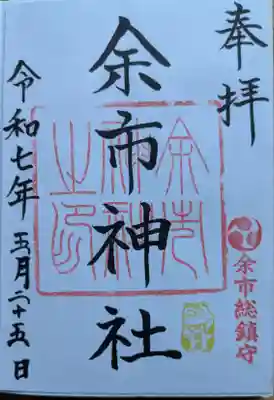 奉拝
余市総鎮守
余市神社
余市神社之印
令和七年五月二十五日